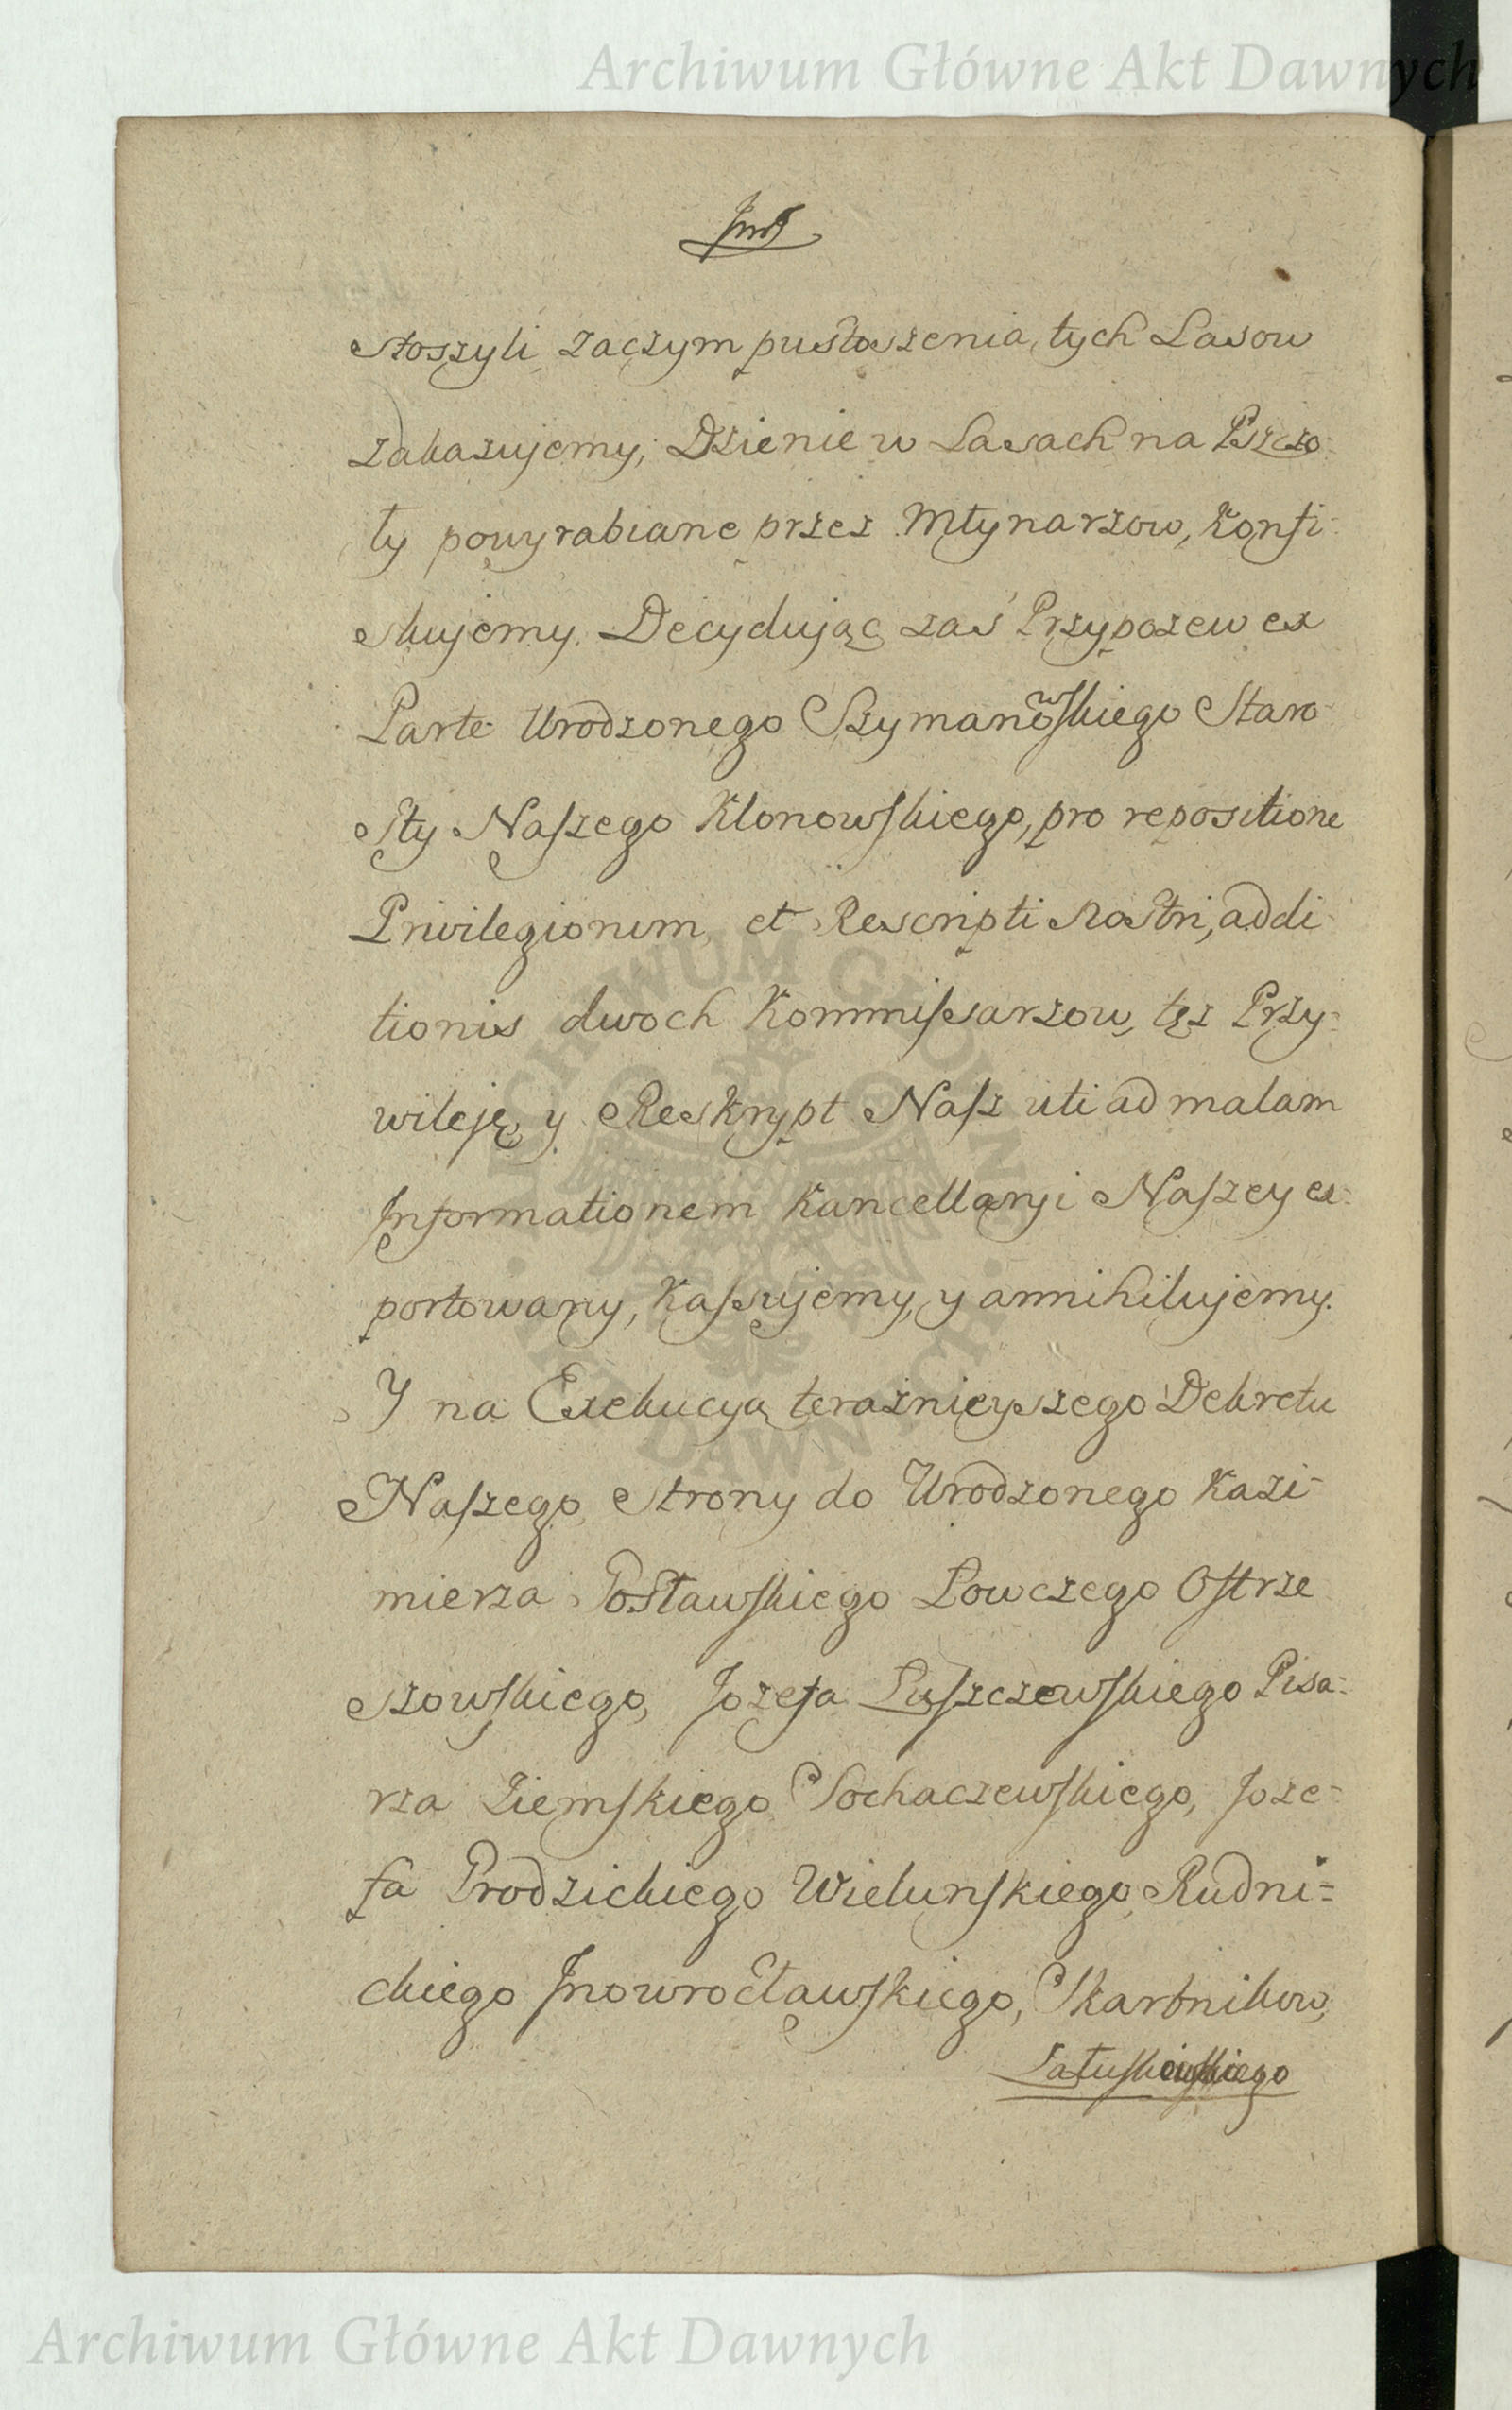 Archiwum Główne Akt Dawnych
stoszyli zaczym pustoszenia tych Lasow
zakazujemy, Dzienie w Lasach na Pszczo-
ły powyrabiane przez Młynarzow, Konfi-
skujemy. Decydując zaś Przypozew ex
Parte Urodzonego Szymanowskiego Staro-
sty Naszego Klonowskiego, pro repositione
Privilegiorum et Rescripti Nostri, addi-
tionis dwoch Kommissarzow, tęż Przy-
wileję y Reskrypt Nasz uti ad malam
Informationem Kancellaryi Naszey ex-
portowany, Kassujemy, y annihilujemy.
Y na Exekucyą teraznieyszego Dekretu
Naszego Strony do Urodzonego Kazi-
mierza Postawskiego Łowczego Ostrze
szowskiego, Jozefa Łuszczewskiego Pisa-
rza Ziemskiego Sochaczewskiego, Joze-
fa Prodzickiego Wielunskiego, Rudni-
ckiego Jnowrocławskiego, Skarbnikow,
ARCHIWUM GŁÓWNE AKT DAWNYCH
Archiwum Główne Akt Dawnych